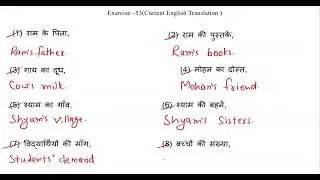 Exercise -53(Current English Translation )
(1) राम के पिता, (2) राम की पुस्तकें,
Ram's father. Ram's books.
(3) गाय का दूध, (4) मोहन का दोस्त,
Cow's milk. Mohan's friend.
(5) श्याम का गाँव, (6) श्याम की बहनें,
Shyam's village. Shyam's Sisters.
(7) विद्यार्थियों की माँग, (8) बच्चों की संख्या,
Students' demand